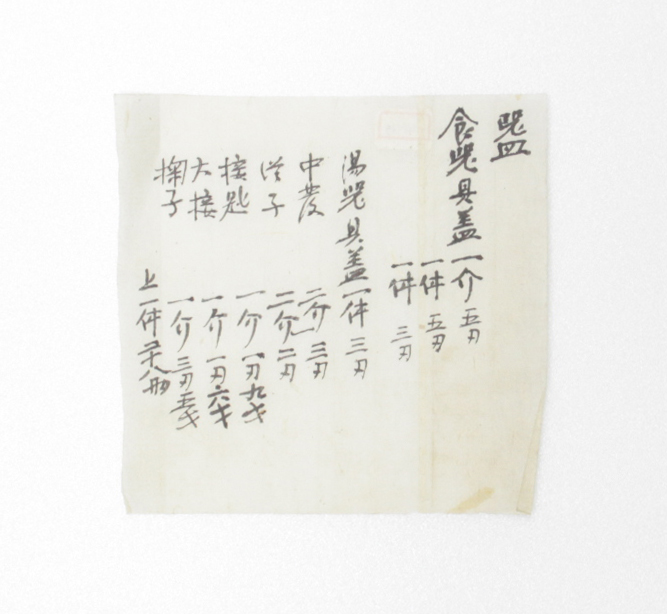 器皿
食器具盖 一介 五刃
一件 五刃
一件 三刃
湯器具盖 一件 三刃
中发 二介 三刃
子 二介 二刃
接匙 一介 一刃九戈
大接 一介 一刃六戈
掬子 一介 三刃五戈
上一件